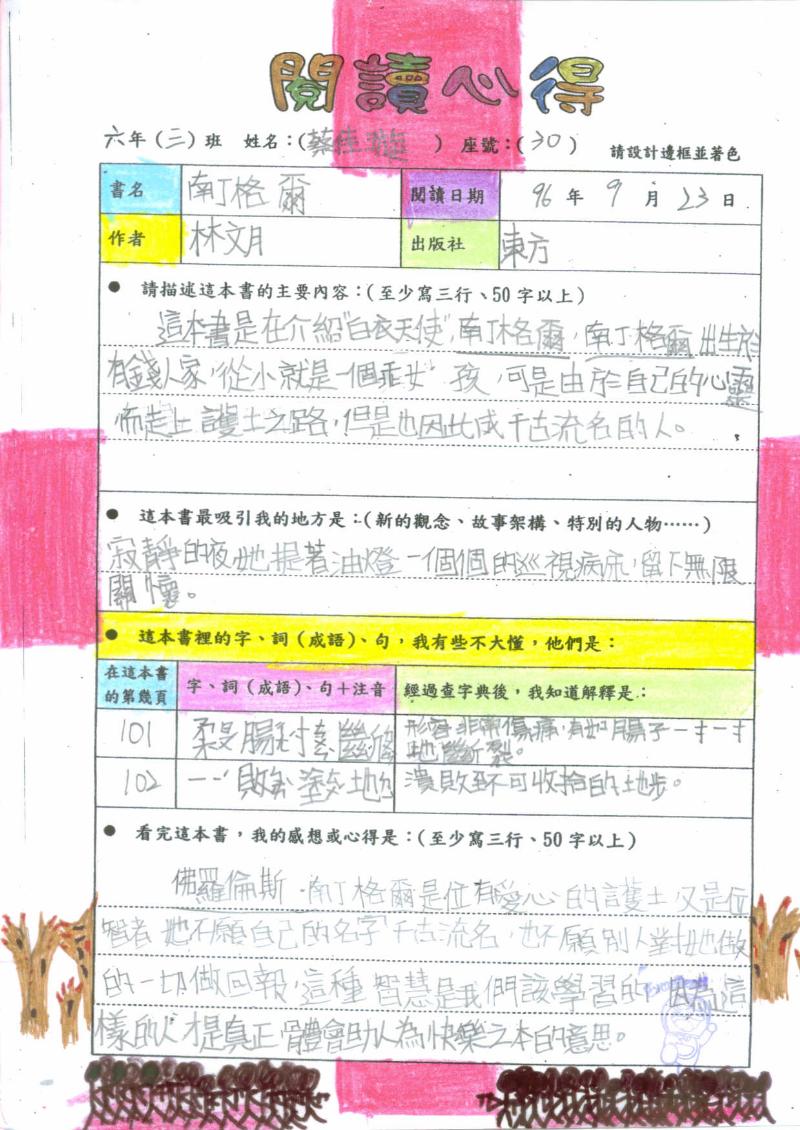 閱讀心得
六年(三)班 姓名:(蔡佳璇) 座號:(30) 請設計邊框並著色
書名 南丁格爾 閱讀日期 96年9月23日
作者 林文月 出版社 東方
● 請描述這本書的主要內容:(至少寫三行、50字以上)
這本書是在介紹"白衣天使",南丁格爾,南丁格爾出生於
有錢人家,從小就是一個乖女孩,可是由於自己的心靈
而走上護士之路,但是也因此成千古流名的人。
● 這本書最吸引我的地方是:(新的觀念、故事架構、特別的人物……)
寂靜的夜她提著油燈一個個的巡視病床,留下無限
關懷。
● 這本書裡的字、詞(成語)、句,我有些不大懂,他們是:
在這本書的第幾頁 字、詞(成語)、句+注音 經過查字典後,我知道解釋是:
101 柔腸寸斷 形容非常傷痛,有如腸子一寸一寸
地斷裂。
102 一敗塗地 潰敗到不可收拾的地步。
● 看完這本書,我的感想或心得是:(至少寫三行、50字以上)
佛羅倫斯.南丁格爾是位有愛心的護士又是位
智者她不願自己的名字千古流名,也不願別人對把她做
的一切做回報,這種智慧是我們該學習的,因為這
樣的人才是真正體會助人為快樂之本的意思。